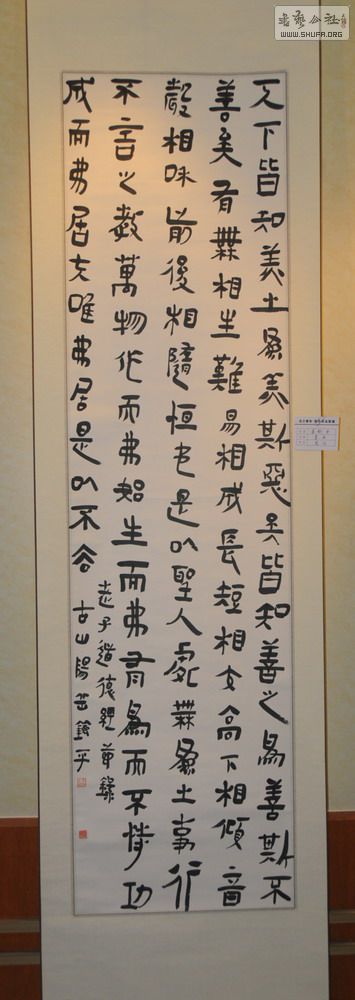 書藝公社
WWW.SHUFA.ORG
天下皆知美之為美斯惡矣皆知善之為善斯不
善矣有無相生難易相成長短相高下相傾音
聲相咊前後相隨恒也是以聖人處無為之事行
不言之教萬物作而弗始生而弗有為而不恃功
成而弗居夫唯弗居是以不去
老子道德經節錄
古山陽